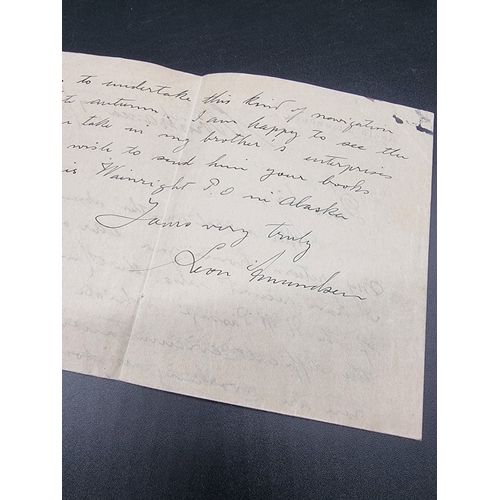 to undertake this kind of navigation
autumn. I am happy to see the
take in my brother's enterprises
wish to send him your books
is Wainright P.O in Alaska
Yours very truly
Leon Amundsen